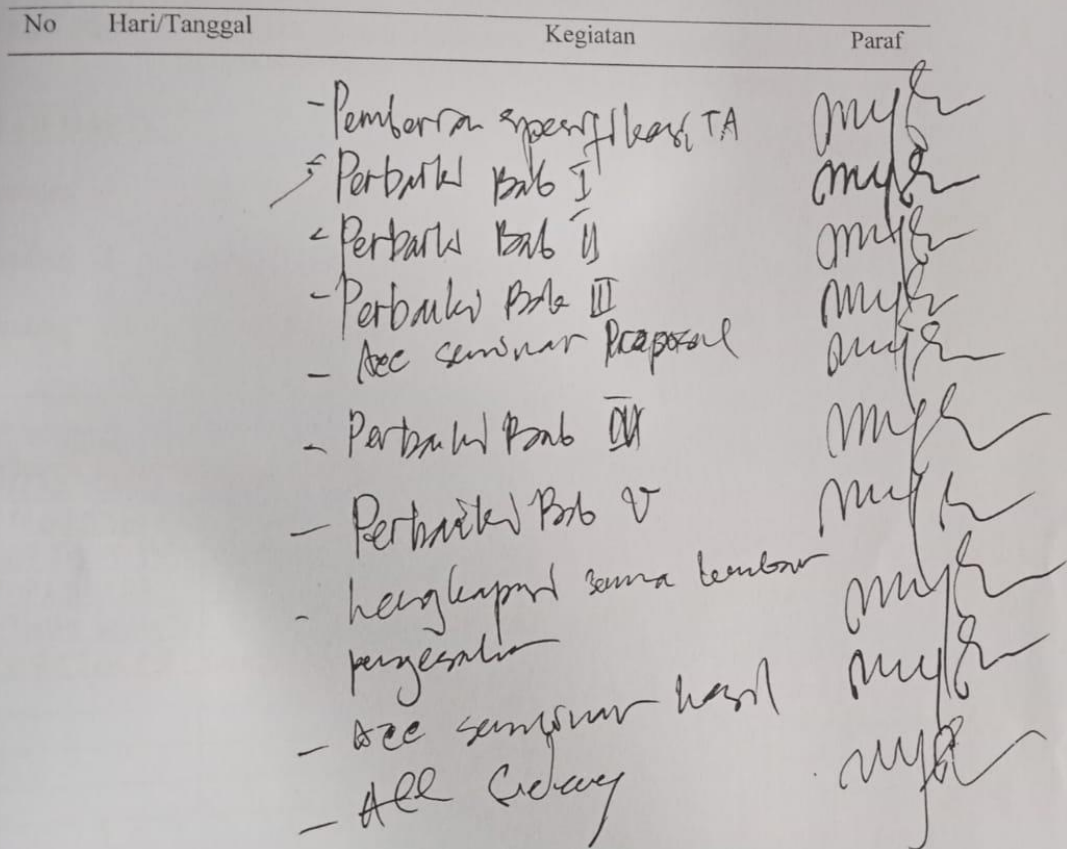 No Hari/Tanggal Kegiatan Paraf
- Pemberian spesifikasi TA
- Perbaiki Bab I
- Perbaiki Bab II
- Perbaiki Bab III
- Acc seminar Proposal
- Perbaiki Bab IV
- Perbaiki Bab V
- Lengkapi semua lembar
pengesahan
- Acc seminar hasil
- Acc Sidang